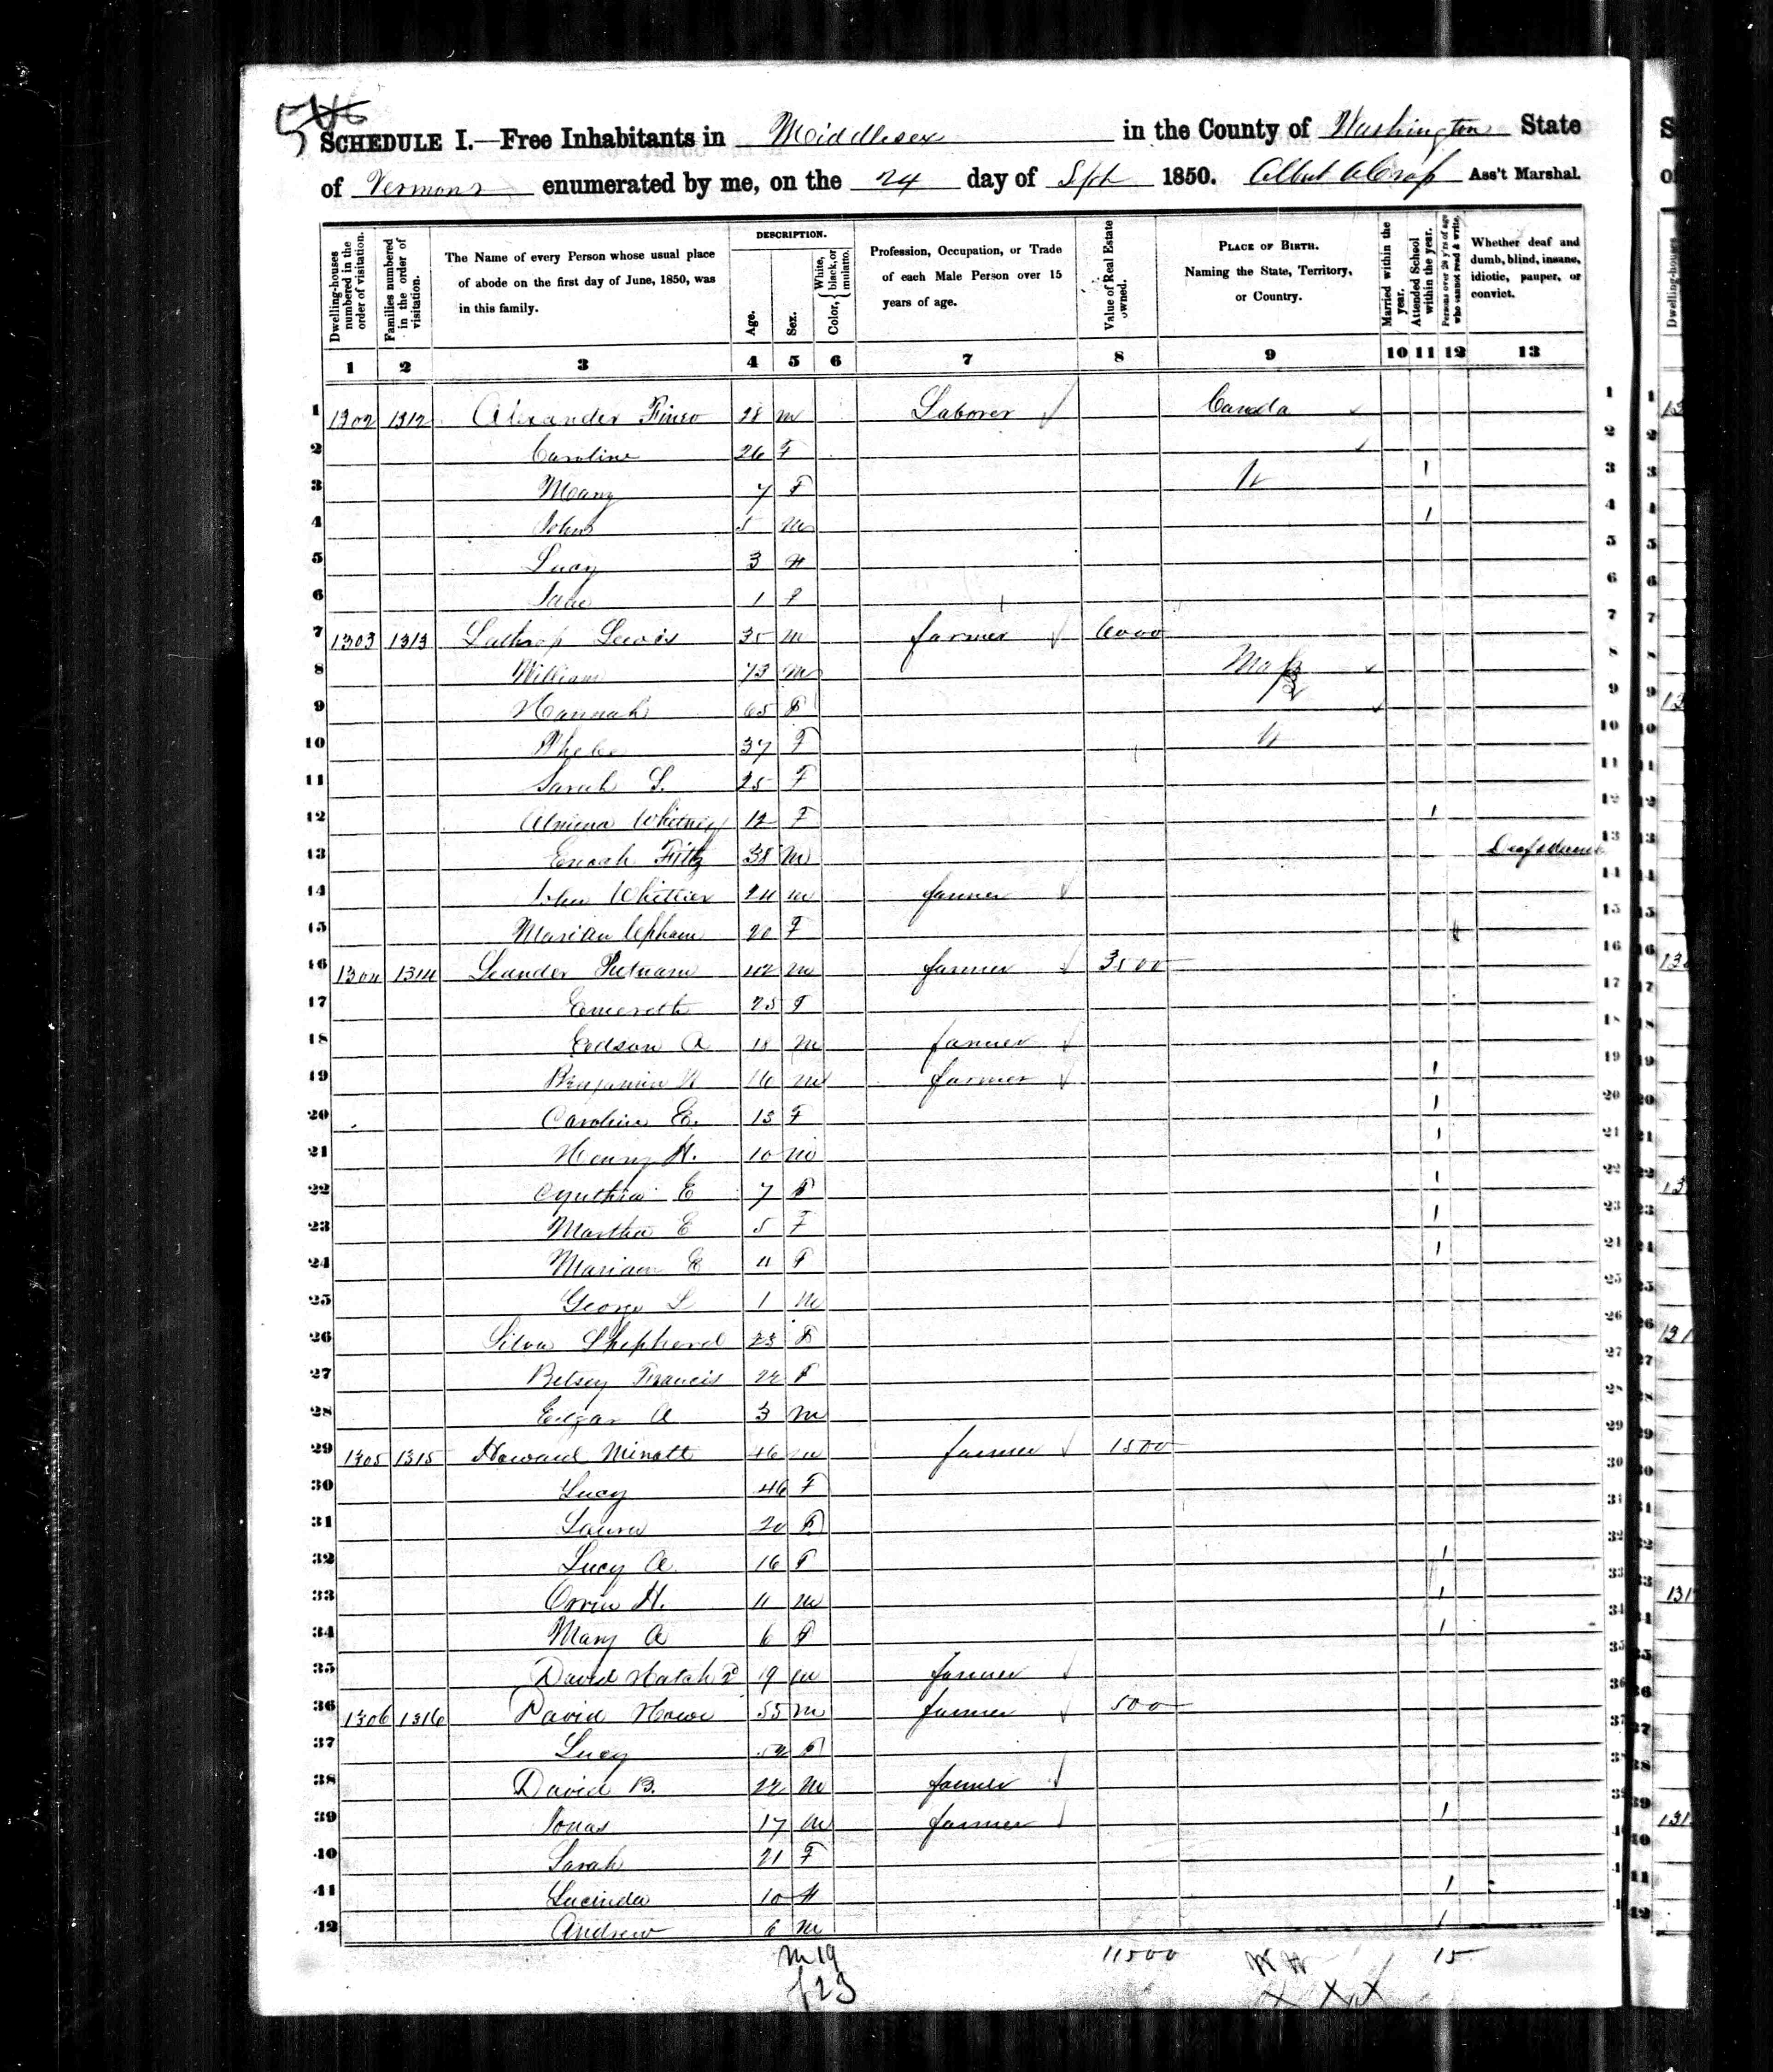 SCHEDULE I.—Free Inhabitants in Middlesex in the County of Washington State
of Vermont enumerated by me, on the 24 day of Sept 1850. Ass't Marshal.
Dwelling-houses numbered in the order of visitation.
Families numbered in the order of visitation.
The Name of every Person whose usual place of abode on the first day of June, 1850, was in this family.
DESCRIPTION.
Age.
Sex.
Color, White, black, or mulatto.
Profession, Occupation, or Trade of each Male Person over 15 years of age.
Value of Real Estate owned.
PLACE OF BIRTH. Naming the State, Territory, or Country.
Married within the year.
Attended School within the year.
Persons over 20 y'rs of age who cannot read & write.
Whether deaf and dumb, blind, insane, idiotic, pauper, or convict.
1 2 3 4 5 6 7 8 9 10 11 12 13
1 1302 1312 Alexander 28 m Laborer Canada 1
2 Caroline 26 F 2
3 Mary 7 F 1 3
4 John 5 m 1 4
5 Lucy 3 5
6 Jane 1 F 6
7 1303 1313 Lathrop Lewis 35 m farmer 6000 7
8 William 73 m Mass 8
9 Hannah 65 F 9
10 Phebe 37 F 10
11 Sarah S. 25 F 11
12 Almira Whitney 12 F 1 12
13 Enoch Fitts 38 m Deaf & dumb 13
14 John Whittier 24 m farmer 14
15 Marian Upham 20 F 15
16 1304 1314 Leander Putnam 42 m farmer 3500 16
17 F 17
18 Edson A 18 m farmer 18
19 Benjamin 16 m farmer 1 19
20 Caroline E. 13 F 1 20
21 Henry H. 10 m 1 21
22 Cynthia E 7 F 1 22
23 Martha E 5 F 1 23
24 Marian E 4 F 1 24
25 George L 1 m 25
26 Silva Shepherd 23 F 26
27 Betsey Francis 22 F 27
28 Edgar A 3 m 28
29 1305 1315 Howard Minott 46 m farmer 1500 29
30 Lucy 46 F 30
31 Laura 20 F 31
32 Lucy A. 16 F 1 32
33 Orrin H. 11 m 1 33
34 Mary A 6 F 1 34
35 David Hatch 2d 19 m farmer 35
36 1306 1316 David Howe 55 m farmer 500 36
37 Lucy 52 F 37
38 David B. 22 m farmer 38
39 Jonas 17 m farmer 1 39
40 Sarah 21 F 40
41 Lucinda 10 1 41
42 Andrew 6 m 1 42
m 19 11500 15
f 23